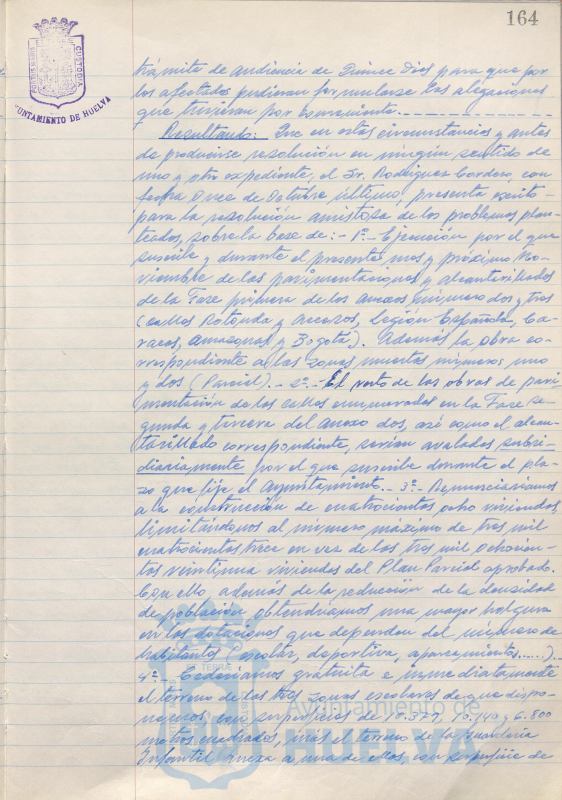 164
CUSTODIA
AYUNTAMIENTO DE HUELVA
trámite de audiencia de Quince Dias para que por
los afectados pudieran formularse las alegaciones
que tuvieran por conveniente.
Resultando: Que en estas circunstancias y antes
de producirse resolución en ningún sentido de
uno y otro expediente, el Sr. Rodriguez Cordero, con
fecha Once de Octubre último, presenta escrito
para la resolución amistosa de los problemas plan-
teados, sobre la base de: - 1º.- Ejecución por el que
suscribe y durante el presente mes y próximo No-
viembre de las pavimentaciones y alcantarillados
de la Fase primera de los anexos número dos y tres
(calles Rotonda y accesos, Legión Española, Ca-
racas, Amazonas y Bogotá). Además la obra co-
rrespondiente a las zonas muertas números uno
y dos (Parcial).- 2º.- El resto de las obras de pavi-
mentación de las calles enumeradas en la Fase se-
gunda y tercera del anexo dos, asi como el alcan-
tarillado correspondiente, serian avaladas subsi-
diariamente por el que suscribe durante el pla-
zo que fije el Ayuntamiento.- 3º.- Renunciariamos
a la construcción de cuatrocientas ocho viviendas
limitándonos al número máximo de tres mil
cuatrocientas trece en vez de las tres mil ochocien-
tas veintiuna viviendas del Plan Parcial aprobado.
Con ello, además de la reducción de la densidad
de población obtendriamos una mayor holgura
en las dotaciones que dependen del número de
habitantes (escolar, deportiva, aparcamientos......).
4º.- Cederiamos gratuita e inmediatamente
el terreno de las tres zonas escolares de que dispo-
nemos, con superficies de 10.379, 10.140 y 6.800
metros cuadrados, mas el terreno de la Guarderia
Infantil anexa a una de ellas, con superficie de
Ayuntamiento de
HUELVA